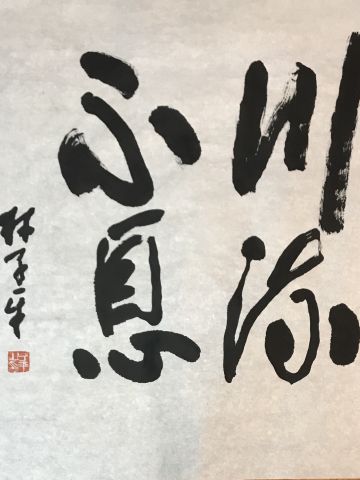 川流
不息
林子平